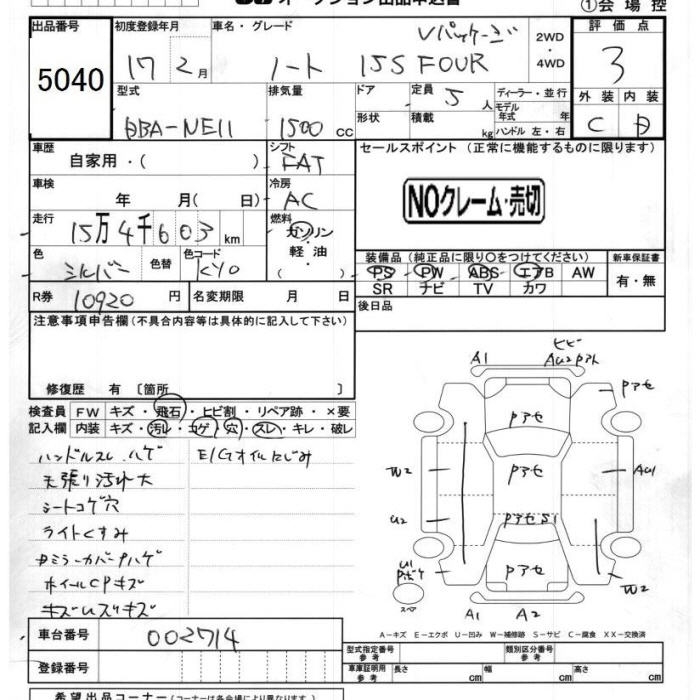 オークション出品申込書
①会場控
出品番号 初度登録年月 車名・グレード 2WD・4WD 評価点
5040 17 2月 ノート 15S FOUR Vパッケージ 3
型式 排気量 ドア 定員 5人 ディーラー・並行 外装 内装
DBA-NE11 1500cc 形状 積載 kg モデル年式 年 ハンドル 左・右 C D
車歴 シフト セールスポイント (正常に機能するものに限ります)
自家用・( ) FAT
車検 冷房
年 月(日) AC
NOクレーム・売切
走行 燃料
15万4千603km ガソリン
軽・油
( )
色 色替 色コード
シルバー KY0
装備品(純正品に限り○をつけてください) 新車保証書
PS PW ABS エアB AW 有・無
SR ナビ TV カワ
R券 10920円 名変期限 月 日 後日品
注意事項申告欄(不具合内容等は具体的に記入して下さい)
修復歴 有〔箇所 〕
検査員記入欄
FW キズ・飛石・ヒビ割・リペア跡・×要
内装 キズ・汚レ・コゲ・穴・スレ・キレ・破レ
ハンドルスレ ハゲ E/Gオイルにじみ
天張り汚れ大
シートコゲ穴
ライトくすみ
Dミラーカバーハゲ
ホイールCPキズ
キズUスリキズ
A1 ヒビ
AU2 Pアト
Pアセ Pアセ
W2 Pアセ AU1
U2 Pアセ S1
U1
Pボケ Pアセ W2
スペア
A1 A2
A-キズ E-エクボ U-凹み W-補修跡 S-サビ C-腐食 XX-交換済
車台番号 002714
型式指定番号 参考 類別区分番号 参考
登録番号
車庫証明用 参考 長さ cm 幅 cm 高さ cm
希望出品コーナー(コーナーは各会場により異なります)